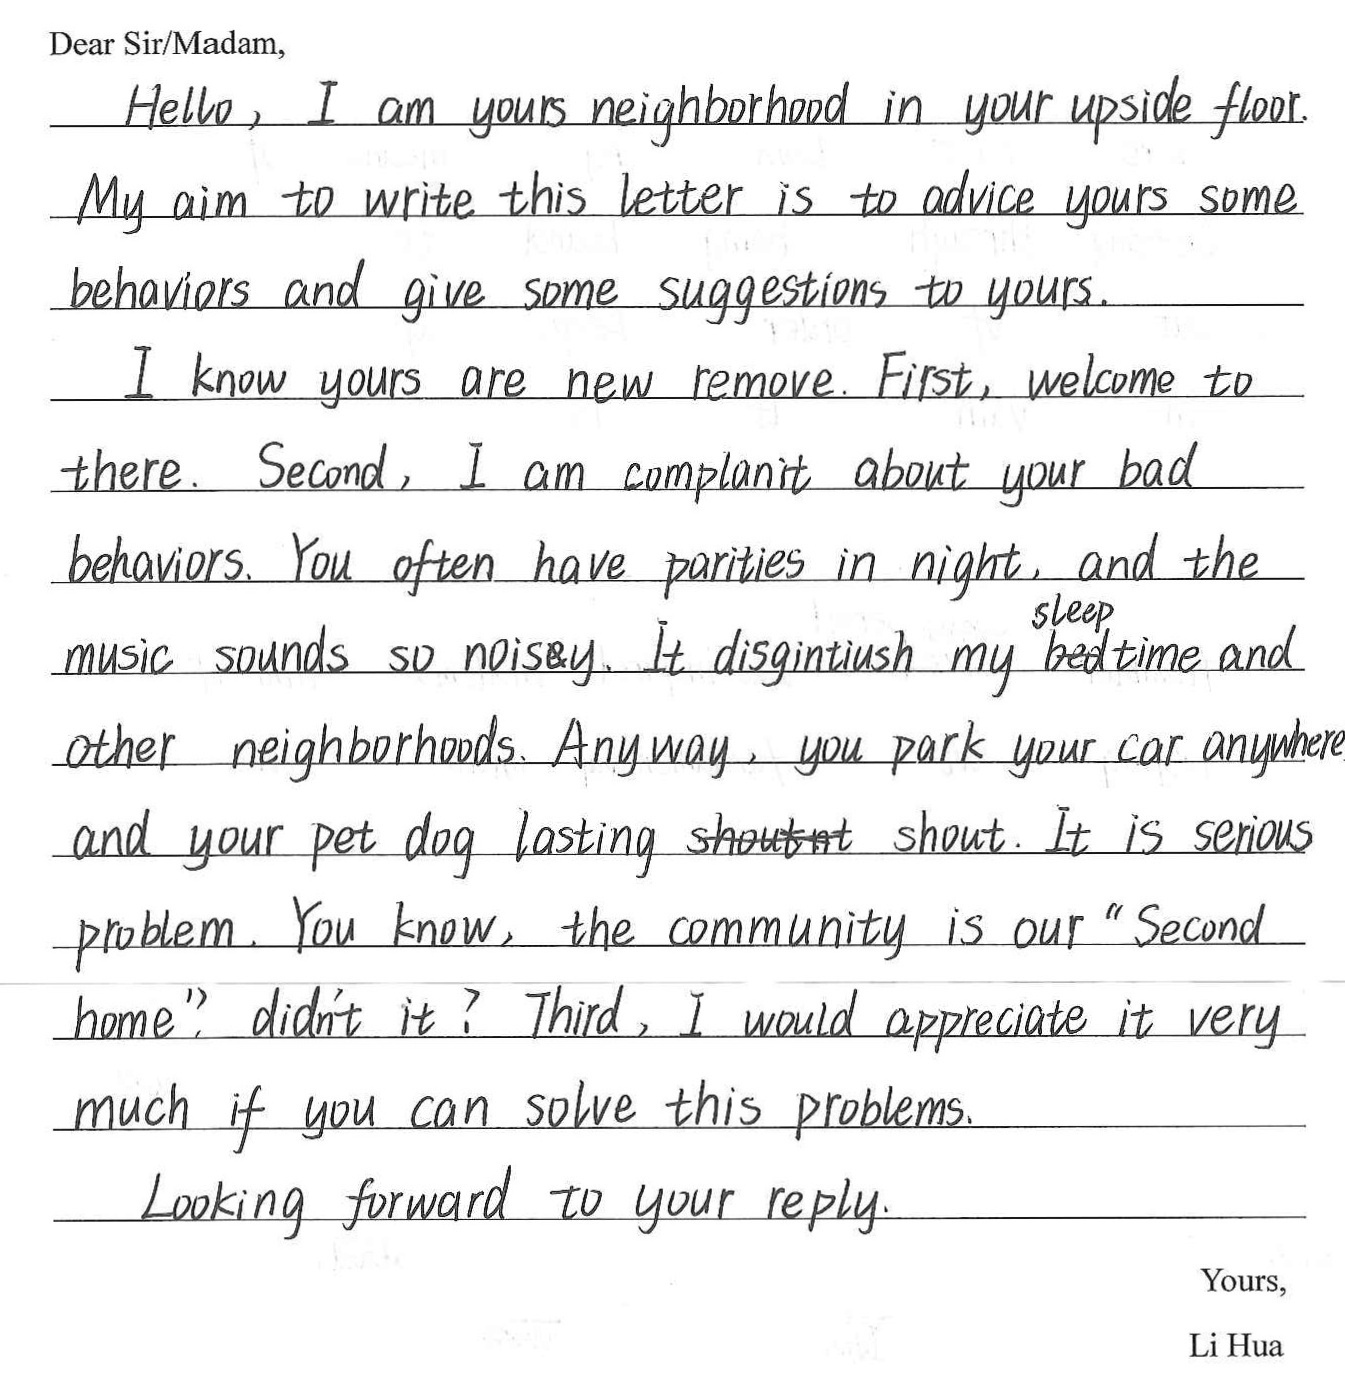 Dear Sir/Madam,
Hello, I am yours neighborhood in your upside floor.
My aim to write this letter is to advice yours some
behaviors and give some suggestions to yours.
I know yours are new remove. First, welcome to
there. Second, I am complanit about your bad
behaviors. You often have parities in night, and the
sleep
music sounds so noisey. It disgintiush my bedtime and
other neighborhoods. Anyway, you park your car anywhere
and your pet dog lasting shout. It is serious
problem. You know, the community is our "Second
home", didn't it? Third, I would appreciate it very
much if you can solve this problems.
Looking forward to your reply.
Yours,
Li Hua